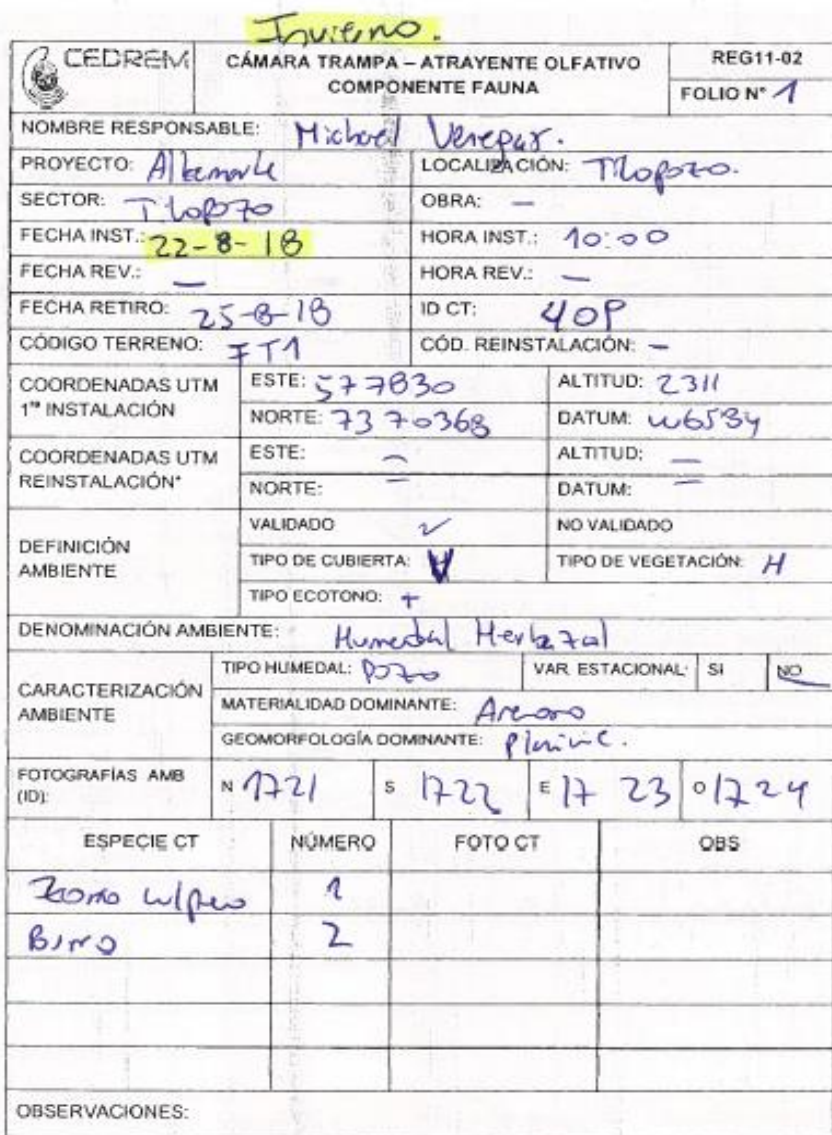 Invierno.
CEDREM
CÁMARA TRAMPA – ATRAYENTE OLFATIVO
COMPONENTE FAUNA
REG11-02
FOLIO N° 1
NOMBRE RESPONSABLE: Michael Venegas.
PROYECTO: Albemarle LOCALIZACIÓN: Tilopozo.
SECTOR: Tilopozo OBRA: —
FECHA INST.: 22-8-18 HORA INST.: 10:00
FECHA REV.: — HORA REV.: —
FECHA RETIRO: 25-8-18 ID CT: 40P
CÓDIGO TERRENO: FT1 CÓD. REINSTALACIÓN: —
COORDENADAS UTM
1ra INSTALACIÓN
ESTE: 577830 ALTITUD: 2311
NORTE: 7370368 DATUM: WGS84
COORDENADAS UTM
REINSTALACIÓN*
ESTE: — ALTITUD: —
NORTE: — DATUM: —
DEFINICIÓN
AMBIENTE
VALIDADO ✓ NO VALIDADO
TIPO DE CUBIERTA: V TIPO DE VEGETACIÓN: H
TIPO ECOTONO: +
DENOMINACIÓN AMBIENTE: Humedal Herbazal
CARACTERIZACIÓN
AMBIENTE
TIPO HUMEDAL: Pozo VAR. ESTACIONAL: SI NO
MATERIALIDAD DOMINANTE:
GEOMORFOLOGÍA DOMINANTE:
FOTOGRAFÍAS AMB
(ID):
N 1721 S 1722 E 1723 O 1724
ESPECIE CT NÚMERO FOTO CT OBS
Zorro culpeo 1
Burro 2
OBSERVACIONES: